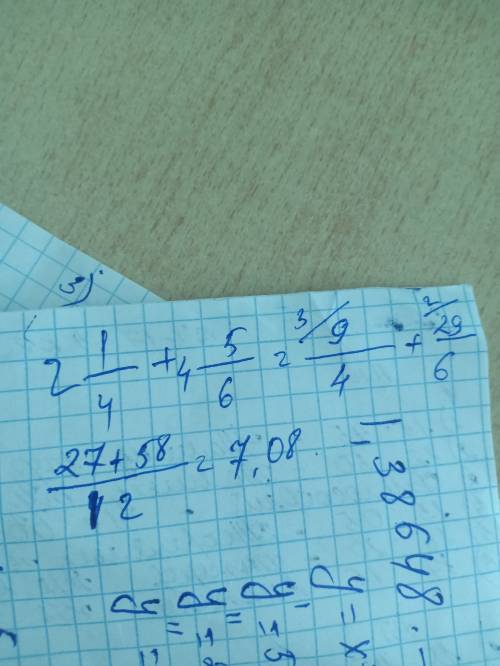 3)
2 1/4 + 4 5/6 = 3/ 9/4 + 2/ 29/6
27+58/12 = 7,08
1,38648
y = x